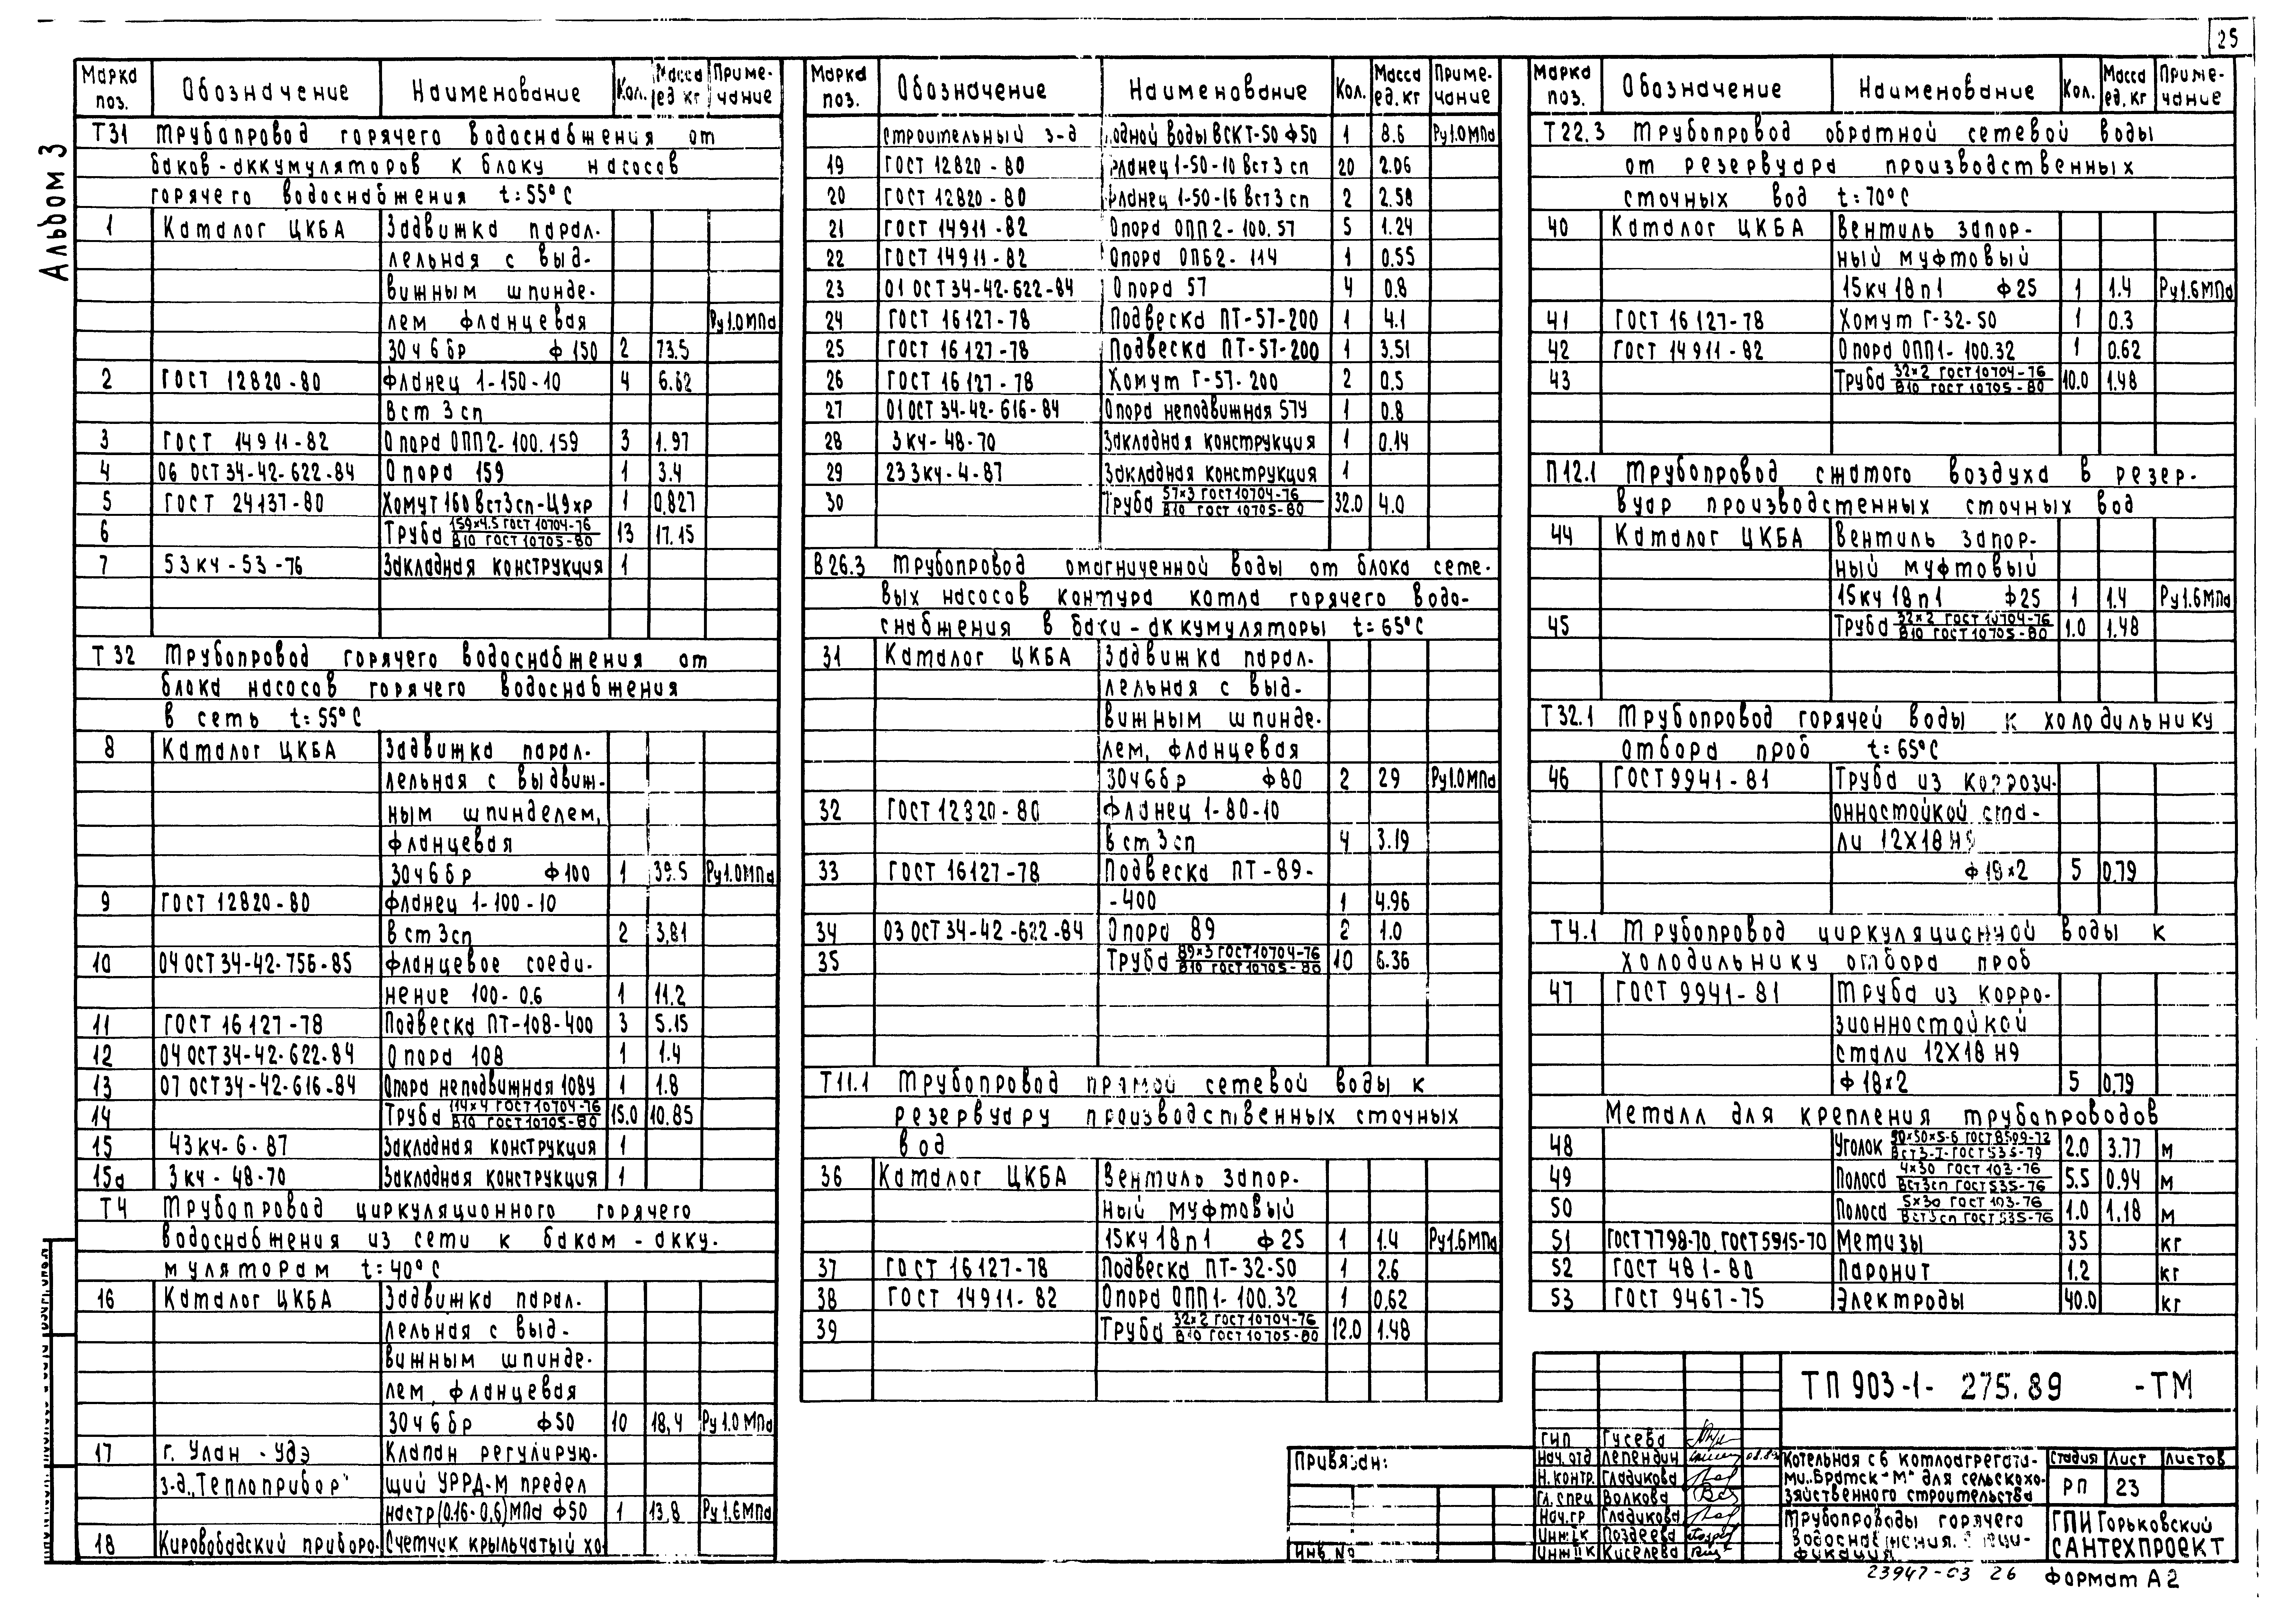 25
Альбом 3
Марка поз. Обозначение Наименование Кол. Масса ед. кг Примечание
Т31 Трубопровод горячего водоснабжения от
баков-аккумуляторов к блоку насосов
горячего водоснабжения t=55°С
1 Каталог ЦКБА Задвижка парал-
лельная с выд-
вижным шпинде-
лем фланцевая Ру1.0МПа
30ч6бр ф150 2 73.5
2 ГОСТ 12820-80 Фланец 1-150-10 4 6.62
Вст3сп
3 ГОСТ 14911-82 Опора ОПП2-100.159 3 1.97
4 06 ОСТ34-42-622-84 Опора 159 1 3.4
5 ГОСТ 24137-80 Хомут 160 Вст3сп-Ц9хр 1 0,827
6 Труба 159×4.5 ГОСТ 10704-76 / В10 ГОСТ 10705-80 13 17.15
7 53кч-53-76 Закладная конструкция 1
Т32 Трубопровод горячего водоснабжения от
блока насосов горячего водоснабжения
в сеть t=55°С
8 Каталог ЦКБА Задвижка парал-
лельная с выдвиж-
ным шпинделем,
фланцевая
30ч6бр ф100 1 39.5 Ру1.0МПа
9 ГОСТ 12820-80 Фланец 1-100-10
Вст3сп 2 3,81
10 04 ОСТ34-42-756-85 Фланцевое соеди-
нение 100-0.6 1 11.2
11 ГОСТ 16127-78 Подвеска ПТ-108-400 3 5.15
12 04 ОСТ34-42-622-84 Опора 108 1 1.4
13 07 ОСТ34-42-616-84 Опора неподвижная 108У 1 1.8
14 Труба 114×4 ГОСТ 10704-76 / В10 ГОСТ 10705-80 15.0 10.85
15 43кч-6-87 Закладная конструкция 1
15а 3кч-48-70 Закладная конструкция 1
Т4 Трубопровод циркуляционного горячего
водоснабжения из сети к бакам-акку-
муляторам t=40°С
16 Каталог ЦКБА Задвижка парал-
лельная с выд-
вижным шпинде-
лем, фланцевая
30ч6бр ф50 10 18,4 Ру1.0МПа
17 г. Улан-Удэ Клапан регулирую-
з-д„Теплоприбор" щий УРРД-М предел
настр(0.16-0,6)МПа ф50 1 13,8 Ру1,6МПа
18 Кировобадский приборо- Счетчик крыльчатый хо-
Марка поз. Обозначение Наименование Кол. Масса ед. кг Примечание
строительный з-д лодной воды ВСКТ-50 ф50 1 8.6 Ру1.0МПа
19 ГОСТ 12820-80 Фланец 1-50-10 Вст3сп 20 2.06
20 ГОСТ 12820-80 Фланец 1-50-16 Вст3сп 2 2.58
21 ГОСТ 14911-82 Опора ОПП2-100.57 5 1.24
22 ГОСТ 14911-82 Опора ОПБ2-114 1 0.55
23 01 ОСТ34-42-622-84 Опора 57 4 0.8
24 ГОСТ 16127-78 Подвеска ПТ-57-200 1 4.1
25 ГОСТ 16127-78 Подвеска ПТ-57-200 1 3.51
26 ГОСТ 16127-78 Хомут Г-57-200 2 0.5
27 01 ОСТ34-42-616-84 Опора неподвижная 57У 1 0.8
28 3кч-48-70 Закладная конструкция 1 0.14
29 233кч-4-87 Закладная конструкция 1
30 Труба 57×3 ГОСТ 10704-76 / В10 ГОСТ 10705-80 32.0 4.0
В26.3 Трубопровод омагниченной воды от блока сете-
вых насосов контура котла горячего водо-
снабжения в баки-аккумуляторы t=65°С
31 Каталог ЦКБА Задвижка парал-
лельная с выд-
вижным шпинде-
лем, фланцевая
30ч6бр ф80 2 29 Ру1.0МПа
32 ГОСТ 12820-80 Фланец 1-80-10
Вст3сп 4 3.19
33 ГОСТ 16127-78 Подвеска ПТ-89-
-400 1 4.96
34 03 ОСТ34-42-622-84 Опора 89 2 1.0
35 Труба 89×3 ГОСТ 10704-76 / В10 ГОСТ 10705-80 10 6.36
Т11.1 Трубопровод прямой сетевой воды к
резервуару производственных сточных
вод
36 Каталог ЦКБА Вентиль запор-
ный муфтовый
15кч18п1 ф25 1 1.4 Ру1.6МПа
37 ГОСТ 16127-78 Подвеска ПТ-32-50 1 2.6
38 ГОСТ 14911-82 Опора ОПП1-100.32 1 0,62
39 Труба 32×2 ГОСТ 10704-76 / В10 ГОСТ 10705-80 12.0 1.48
Марка поз. Обозначение Наименование Кол. Масса ед. кг Примечание
Т22.3 Трубопровод обратной сетевой воды
от резервуара производственных
сточных вод t=70°С
40 Каталог ЦКБА Вентиль запор-
ный муфтовый
15кч18п1 ф25 1 1.4 Ру1.6МПа
41 ГОСТ 16127-78 Хомут Г-32-50 1 0.3
42 ГОСТ 14911-82 Опора ОПП1-100.32 1 0.62
43 Труба 32×2 ГОСТ 10704-76 / В10 ГОСТ 10705-80 10.0 1.48
П12.1 Трубопровод сжатого воздуха в резер-
вуар производственных сточных вод
44 Каталог ЦКБА Вентиль запор-
ный муфтовый
15кч18п1 ф25 1 1.4 Ру1.6МПа
45 Труба 32×2 ГОСТ 10704-76 / В10 ГОСТ 10705-80 1.0 1.48
Т32.1 Трубопровод горячей воды к холодильнику
отбора проб t=65°С
46 ГОСТ 9941-81 Труба из коррози-
онностойкой ста-
ли 12Х18Н9
ф18×2 5 0.79
Т4.1 Трубопровод циркуляционной воды к
холодильнику отбора проб
47 ГОСТ 9941-81 Труба из корро-
зионностойкой
стали 12Х18Н9
ф18×2 5 0,79
Металл для крепления трубопроводов
48 Уголок 50×50×5-6 ГОСТ 8509-72 / Вст3-I-ГОСТ 535-79 2.0 3.77 м
49 Полоса 4×30 ГОСТ 103-76 / Вст3сп ГОСТ 535-76 5.5 0.94 м
50 Полоса 5×30 ГОСТ 103-76 / Вст3сп ГОСТ 535-76 1.0 1.18 м
51 ГОСТ 7798-70, ГОСТ 5915-70 Метизы 35 кг
52 ГОСТ 481-80 Паронит 1.2 кг
53 ГОСТ 9467-75 Электроды 40.0 кг
Привязан:
Инв. №
ТП 903-1-275.89 -ТМ
ГИП Гусева
Нач. отд Лепендин 08.89
Н. контр. Гладикова
Гл. спец Волкова
Нач. гр Гладикова
Инж. I к Поздеева
Инж. II к Киселева
Котельная с 6 котлоагрегата-
ми„Братск-М" для сельскохо-
зяйственного строительства
Стадия Лист Листов
РП 23
Трубопроводы горячего
водоснабжения. Специ-
фикация
ГПИ Горьковский
САНТЕХПРОЕКТ
23947-03 26
Формат А2